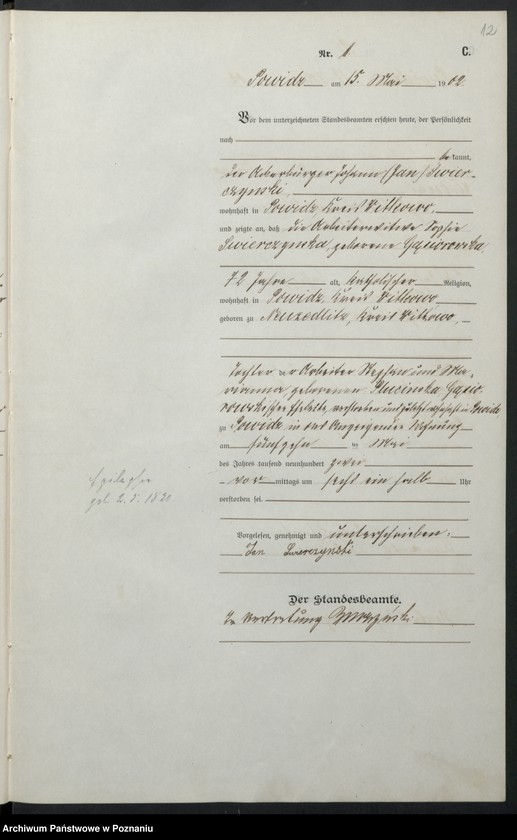 12
Nr. 1 C.
Powidz am 15. Mai 1902
Vor dem unterzeichneten Standesbeamten erschien heute, der Persönlichkeit
nach
be kannt,
der Ackerbürger Johann (Jan) Swier-
czynski
wohnhaft in Powidz, Kreis Witkowo,
und zeigte an, daß die Arbeiterwitwe Sophie
Swierczynska, geborene Gąsiorowska,
72 Jahre alt, katholischer Religion,
wohnhaft in Powidz, Kreis Witkowo,
geboren zu Neuzedlitz, Kreis Witkowo,
Tochter der Arbeiter Stephan und Ma-
rianna, geborenen Plucinska Gąsio-
rowski'schen Eheleute, verstorben und zuletzt wohnhaft in Powidz
zu Powidz in des Anzeigenden Wohnung
am fünfzehn ten Mai
des Jahres tausend neunhundert zwei
vor mittags um sechs ein halb Uhr
verstorben sei.
geb. 2. 5. 1820
Vorgelesen, genehmigt und unterschrieben.
Jan Swierczynski
Der Standesbeamte.
In Vertretung
Archiwum Państwowe w Poznaniu